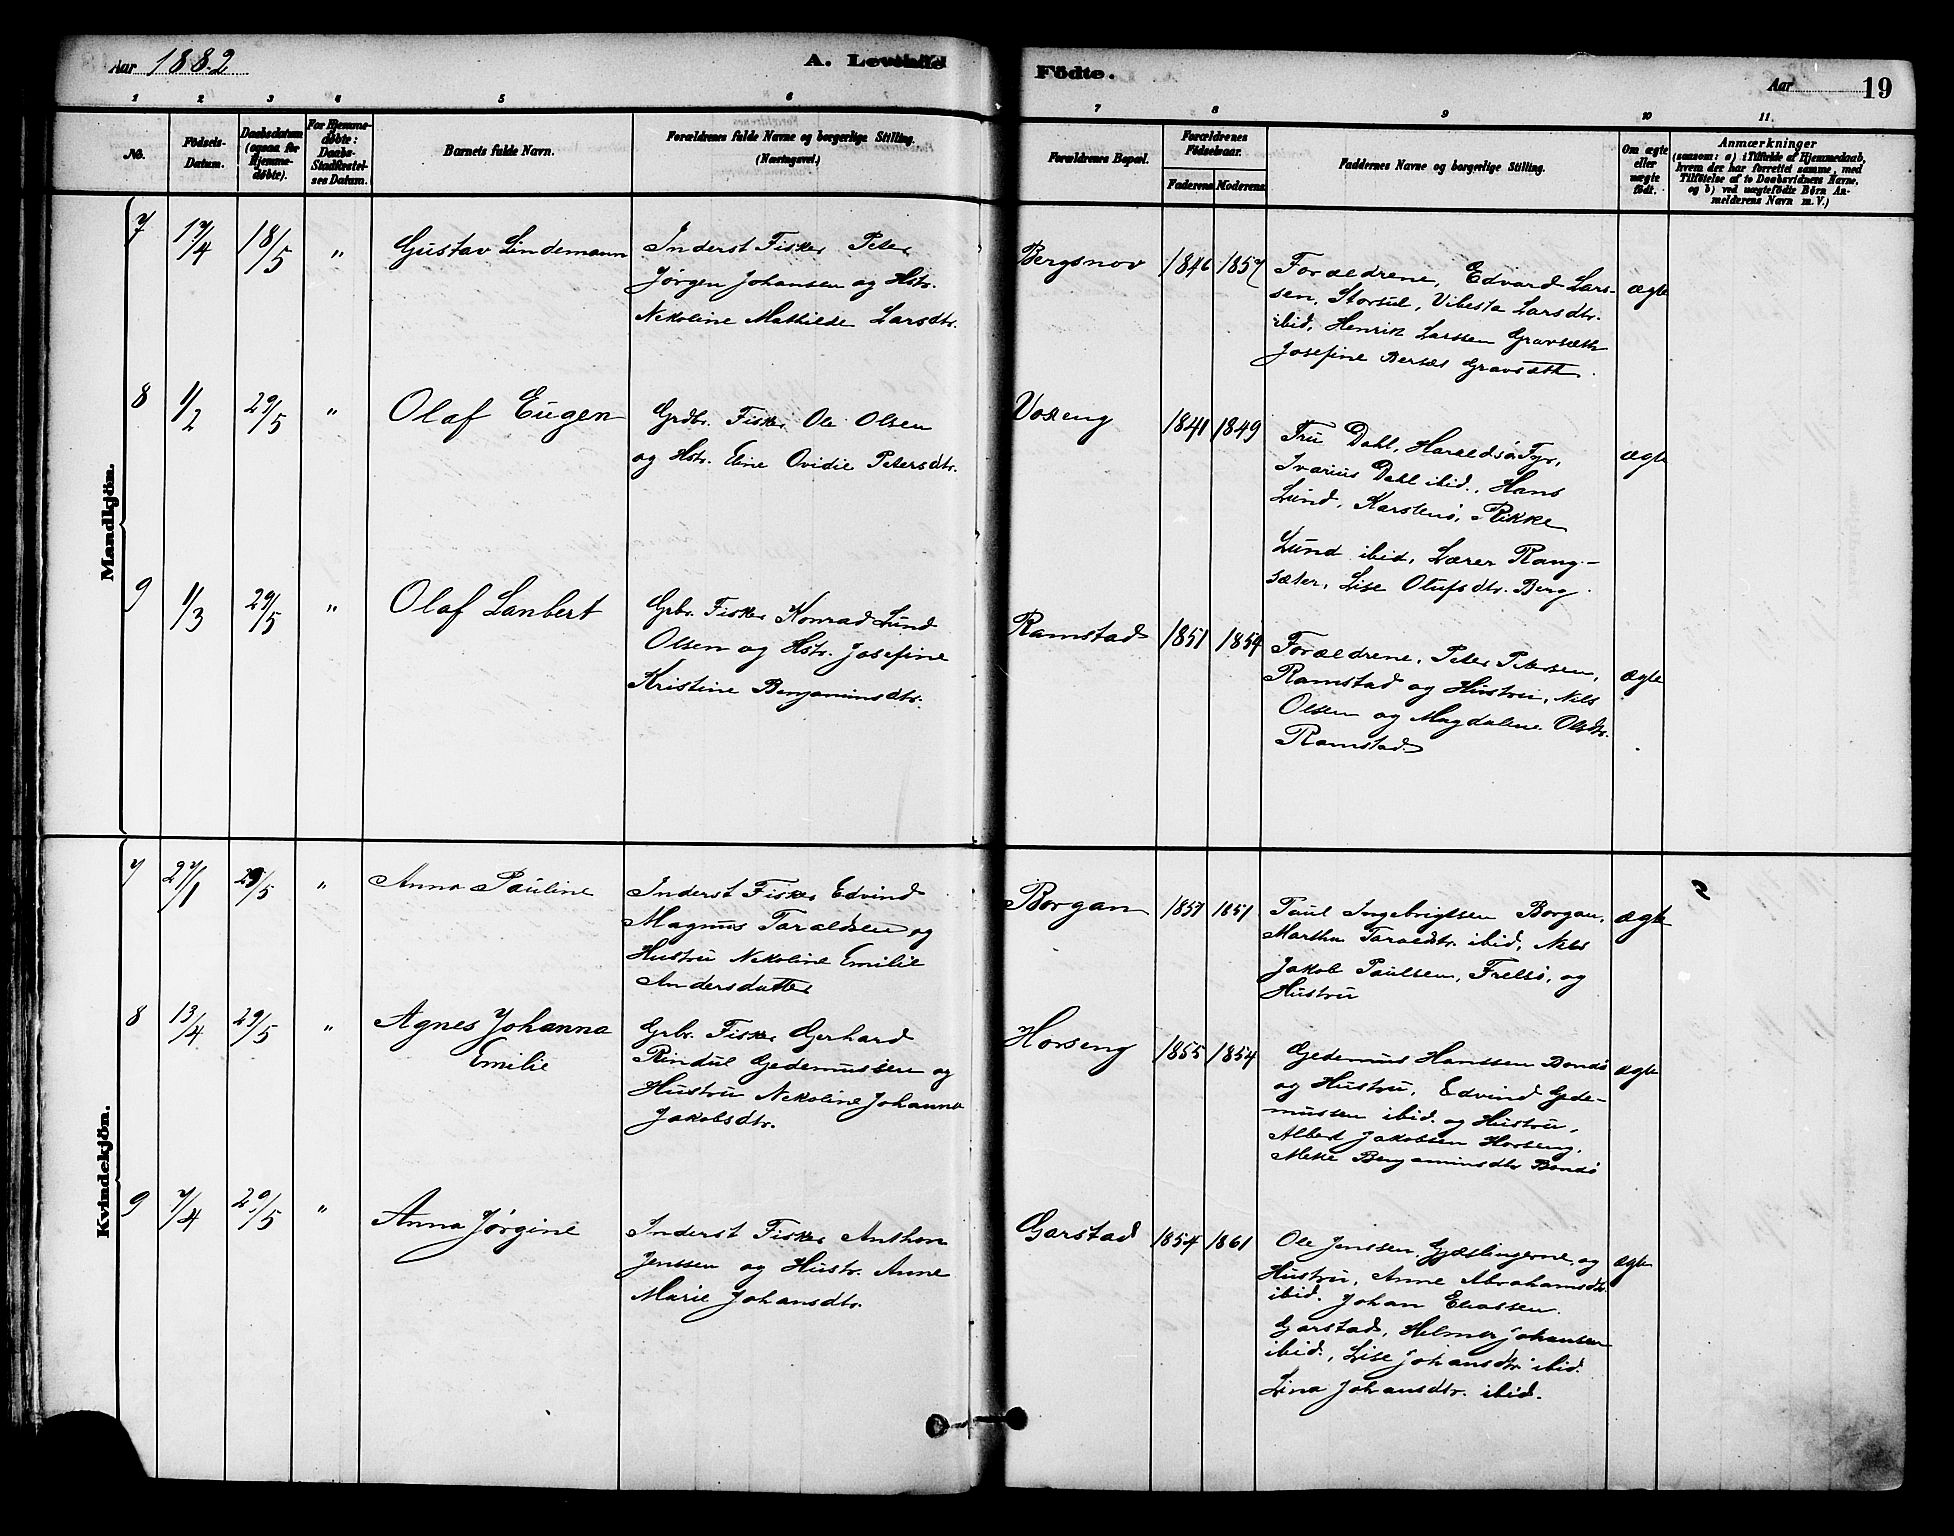 Aar 1882
A. Levende
Födte.
Aar 19
1 2 3 4 5 6 7 8 9 10 11.
No.
Födsels-
Datum.
Daabsdatum
(ogsaa for
Hjemme-
døbte).
For Hjemme-
døbte:
Daabs-
Stadfæstel-
ses Datum.
Barnets fulde Navn.
Forældrenes fulde Navne og borgerlige Stilling.
(Næringsvei.)
Forældrenes Bopæl.
Forældrenes
Födselsaar.
Faderens Moderens
Faddernes Navne og borgerlige Stilling.
Om ægte
eller
uægte
födt.
Anmærkninger
(saasom: a) i Tilfælde af Hjemmedaab,
hvem der har forrettet samme, med
Tilföielse af to Daabsvidners Navne,
og b) ved uægtefödte Börn An-
melderens Navn m. V.)
Mandkjön.
7 17/4 18/5 " Gustav Lindemann
Inderst Fisker Peter
Jørgen Johansen og Hstr.
Nekoline Mathilde Larsdtr.
Bergsnov 1846 1857
Forældrene, Edvard Lars-
sen, Storsul, Vibesta Larsdtr.
ibid, Henrik Larssen Gravsæth
Josefine Bersæs Gravsæth.
ægte
8 1/2 29/5 " Olaf Eugen
Grdbr. Fisker Ole Olsen
og Hstr. Eline Ovidie Petersdtr.
Voxeng 1841 1849
Fru Dahl, Haraldsø Fyr,
Ivarius Dahl ibid., Hans
Lund, Karstenø, Rikke
Lund ibid, Lærer Rang-
sæter, Lise Olufsdtr. Berg.
ægte
9 1/3 29/5 " Olaf Lanbert
Grbr. Fisker Konrad Lund
Olsen og Hstr. Josefine
Kristine Benjaminsdtr.
Ramstad 1851 1854
Forældrene, Peter Petersen,
Ramstad og Hustru, Nils
Olsen og Magdalene Olsdtr.
Ramstad
ægte
Kvindekjön.
7 27/1 29/5 " Anna Pauline
Inderst Fisker Edvind
Magnus Taraldsen og
Hustru Nekoline Emilie
Andersdatter
Borgan 1857 1851
Paul Ingebrigtsen Borgan,
Martha Taraldsdtr. ibid, Nils
Jakob Paulsen, Frelsø, og
Hustru
ægte
8 13/4 29/5 " Agnes Johanna
Emilie
Grbr. Fisker Gerhard
Rindul Gedemussen og
Hustru Nekoline Johanna
Jakobsdtr.
Horseng 1855 1854
Gedemus Hanssen Bondø
og Hustru, Edvind Gede-
mussen ibid. og Hustru,
Albert Jakobsen Horseng,
Meke Benjaminsdtr Bondø
ægte
9 7/4 29/5 " Anna Jørgine
Inderst Fisker Anthon
Jenssen og Hustr. Anne
Marie Johansdtr.
Garstad 1854 1861
Ole Jenssen Gjæslingerne, og
Hustru, Anne Abrahamsdtr.
ibid. Johan Eliassen
Garstad, Helmer Johansen
ibid., Lise Johansdtr ibid.
Lina Johansdtr. ibid.
ægte